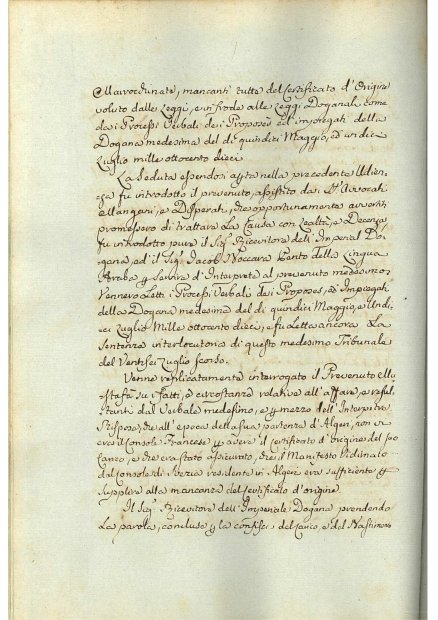 Marocchinate, mancanti tutte del Certificato d'Origine
voluto dalle Leggi, e in frode alle Leggi Doganali come
dai Processi Verbali dei Proposés ed impiegati della
Dogana medesima del di quindici Maggio, ed undici
Luglio mille ottocento dieci
La Seduta essendosi aperta nella precedente Udien-
za fu introdotto il prevenuto, assistito dai SS.ri Avvocati
Mangani, e Disperati, che opportunamente avvertiti
promessero di trattare La Causa con Lealtà, e Decenza,
fu introdotto pure il Sig.r Ricevitore dell'Imperial Do-
gana, ed il Sig.r Jacob Noccara Perito della Lingua
Araba p servire d'Interprete al prevenuto medesimo
Vennero Letti i Processi Verbali dei Proposes, ed Impiegati
della Dogana medesima del di quindici Maggio, e Undi-
ci Luglio Mille ottocento dieci, e fu Letta ancora La
Sentenza interlocutoria di questo medesimo Tribunale
del Ventisei Luglio scorso.
Venne replicatamente interrogato il Prevenuto Mu-
stafà sui fatti, e circostanze relative all'affare, e resul-
tanti dal Verbale medesimo, e p mezzo dell'Interpetre
Rispose che all'epoca della sua partenza d'Algeri, non vi
era il Console Francese p avere il Certificato d'Origine del suo
Carico, e che era stato assicurato, che il Manifesto Vidimato
dal Console di Svezia residente in Algeri era sufficiente p
supplire alla mancanza del Certificato d'origine.
Il Sig.r Ricevitore dell'Imperiale Dogana prendendo
La parola, concluse p la confisca del Carico, e del Bastimento